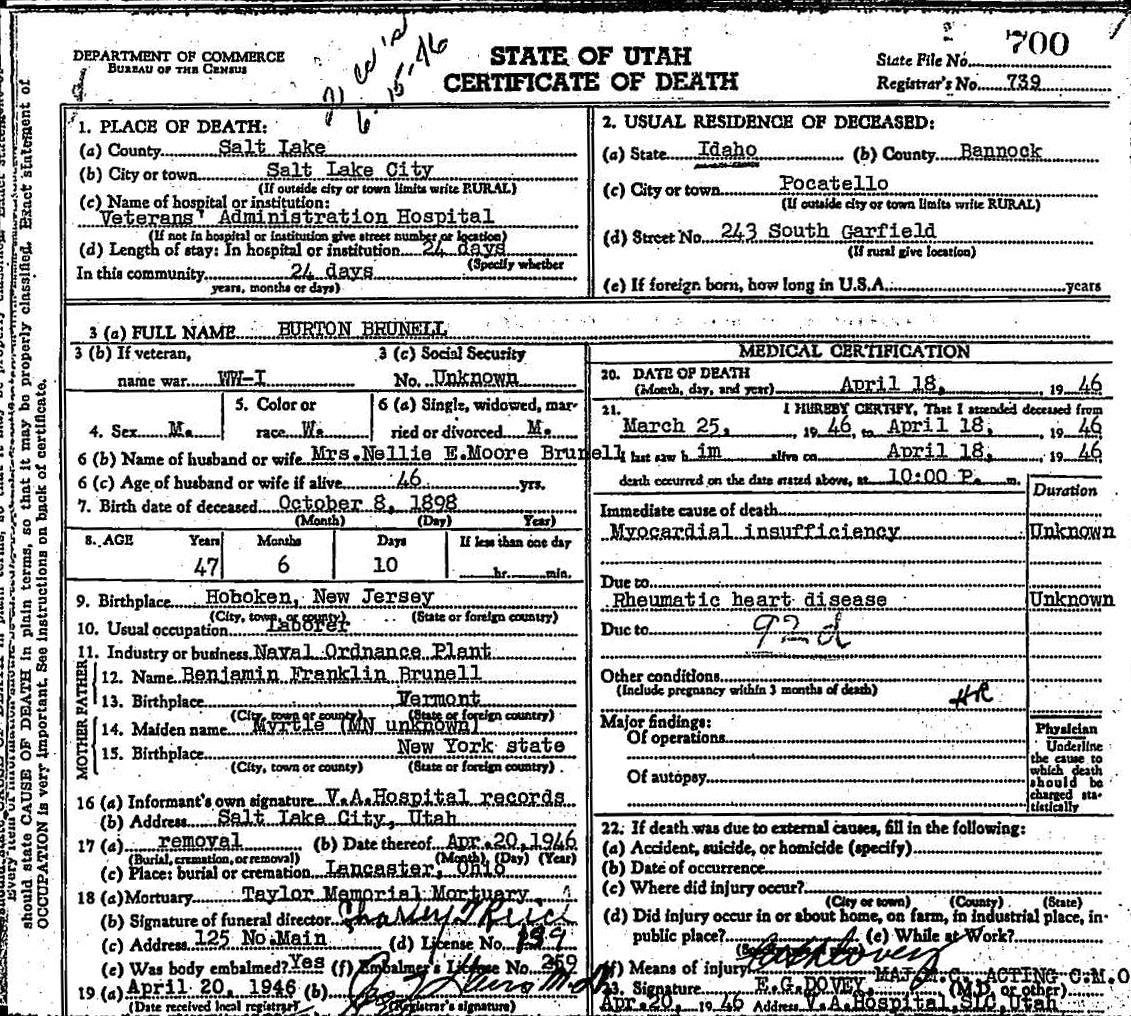 DEPARTMENT OF COMMERCE
BUREAU OF THE CENSUS
6-15-46
STATE OF UTAH
CERTIFICATE OF DEATH
State File No. 700
Registrar's No. 739
1. PLACE OF DEATH:
(a) County Salt Lake
(b) City or town Salt Lake City
(If outside city or town limits write RURAL)
(c) Name of hospital or institution:
Veterans' Administration Hospital
(If not in hospital or institution give street number or location)
(d) Length of stay: In hospital or institution 24 days
(Specify whether
In this community 24 days
years, months or days)
2. USUAL RESIDENCE OF DECEASED:
(a) State Idaho (b) County Bannock
(c) City or town Pocatello
(If outside city or town limits write RURAL)
(d) Street No. 243 South Garfield
(If rural give location)
(e) If foreign born, how long in U.S.A. years
3 (a) FULL NAME BURTON BRUNELL
3 (b) If veteran, 3 (c) Social Security
name war WW-I No. Unknown
5. Color or 6 (a) Single, widowed, mar-
4. Sex M. race W. ried or divorced M.
6 (b) Name of husband or wife Mrs.Nellie E.Moore Brunell
6 (c) Age of husband or wife if alive 46 yrs.
7. Birth date of deceased October 8, 1898
(Month) (Day) Year)
8. AGE Years Months Days If less than one day
47 6 10 hr. min.
9. Birthplace Hoboken, New Jersey
(City, town, or county) (State or foreign country)
10. Usual occupation Laborer
11. Industry or business Naval Ordnance Plant
FATHER
12. Name Benjamin Franklin Brunell
13. Birthplace Vermont
(City, town or county) (State or foreign country)
MOTHER
14. Maiden name Myrtle (MN unknown)
15. Birthplace New York state
(City, town or county) (State or foreign country)
16 (a) Informant's own signature V.A.Hospital records
(b) Address Salt Lake City, Utah
17 (a) removal (b) Date thereof Apr.20,1946
(Burial, cremation, or removal) (Month) (Day) (Year)
(c) Place: burial or cremation Lancaster, Ohio
18 (a) Mortuary Taylor Memorial Mortuary
(b) Signature of funeral director
(c) Address 125 No.Main (d) License No. 199
(e) Was body embalmed? Yes (f) Embalmer's License No. 259
19 (a) April 20, 1946 (b)
(Date received local registrar) (Registrar's signature)
MEDICAL CERTIFICATION
20. DATE OF DEATH
(Month, day, and year) April 18, 19 46
21. I HEREBY CERTIFY, That I attended deceased from
March 25, 19 46, to April 18, 19 46
I last saw h im alive on April 18, 19 46
death occurred on the date stated above, at 10:00 P. m.
Duration
Immediate cause of death
Myocardial insufficiency Unknown
Due to
Rheumatic heart disease Unknown
Due to 92d
Other conditions
(Include pregnancy within 3 months of death)
HR
Major findings:
Of operations
Of autopsy
Physician
Underline
the cause to
which death
should be
charged sta-
tistically
22. If death was due to external causes, fill in the following:
(a) Accident, suicide, or homicide (specify)
(b) Date of occurrence
(c) Where did injury occur?
(City or town) (County) (State)
(d) Did injury occur in or about home, on farm, in industrial place, in
public place? (e) While at Work?
(f) Means of injury
23. Signature E.G.DOVEY, MAJ.M.C. ACTING C.M.O
(M.D. or other)
Apr.20, 19 46 Address V.A.Hospital SLC,Utah
should state CAUSE OF DEATH in plain terms, so that it may be properly classified. Exact statement of
OCCUPATION is very important. See instructions on back of certificate.